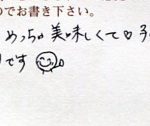 のでお書き下さい。
めっちゃ美味しくて♡
です